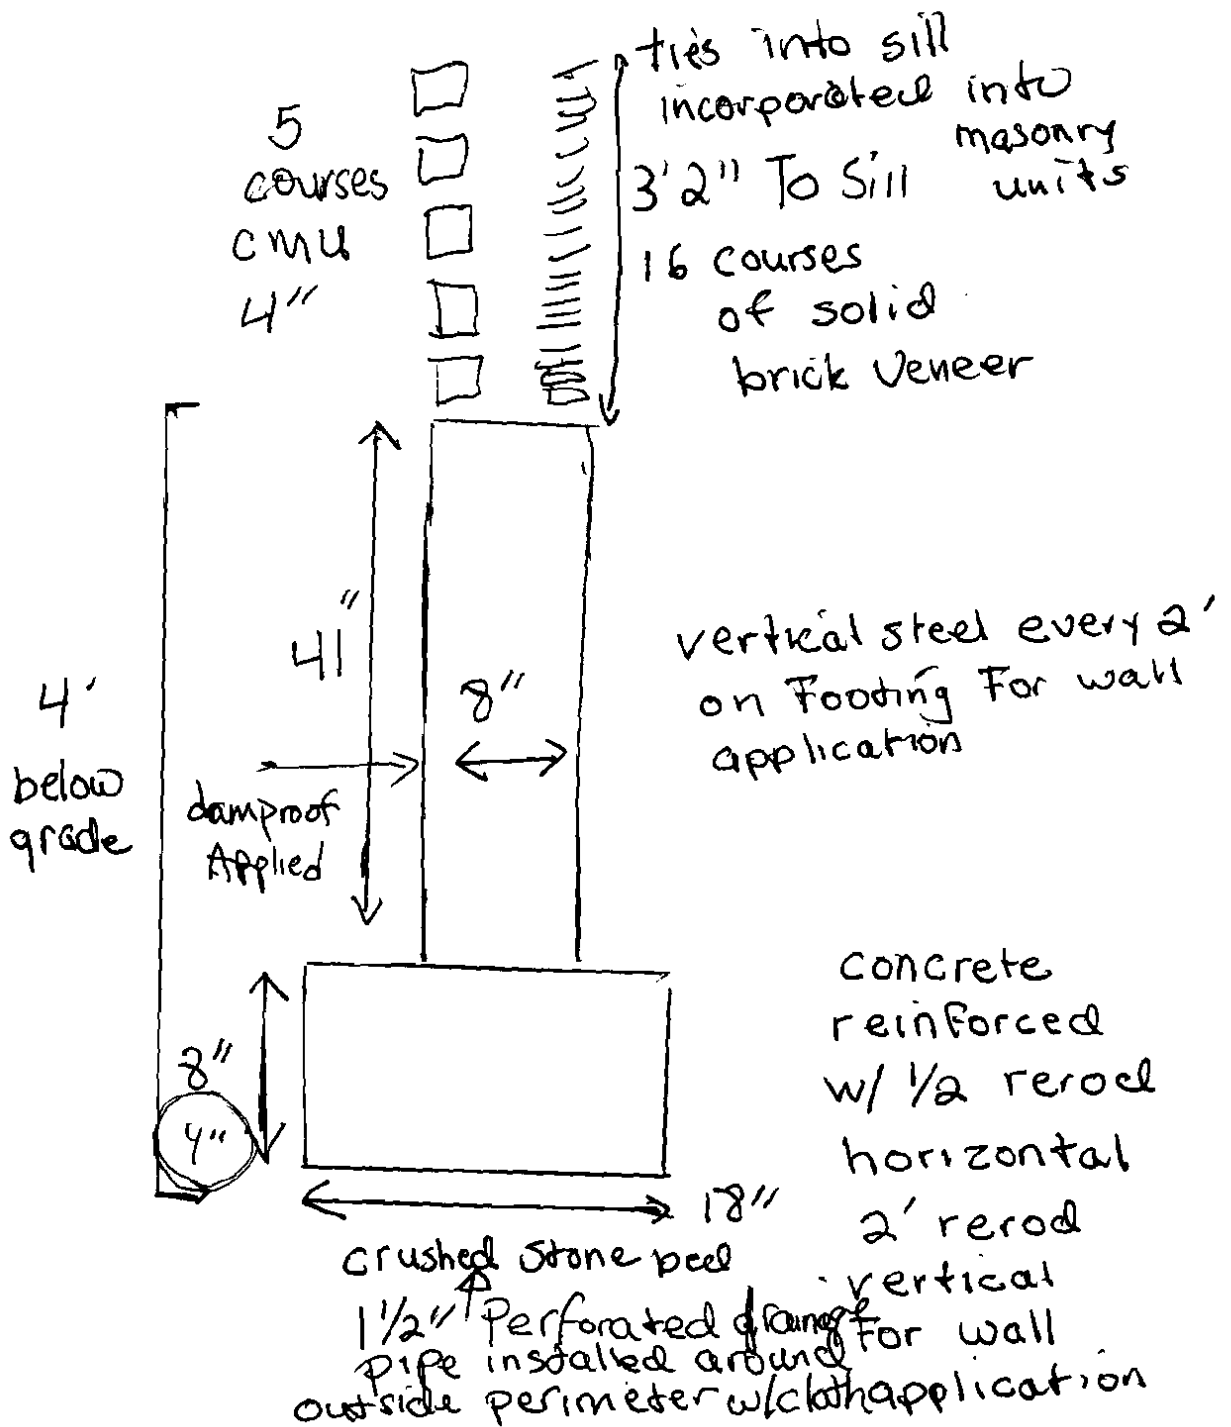 ties into sill
incorporated into
masonry
units
3'2" To Sill
16 courses
of solid
brick Veneer
5
courses
cmu
4"
41"
8"
vertical steel every 2'
on Footing For wall
application
4'
below
grade
damproof
Applied
8"
4"
18"
concrete
reinforced
w/ 1/2 rerod
horizontal
2' rerod
vertical
For wall
application
crushed stone bed
1 1/2" Perforated
pipe installed around
outside perimeter w/cloth